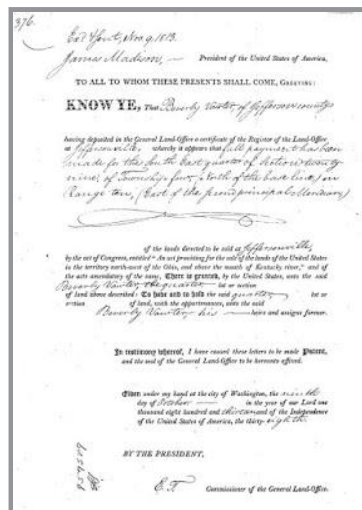 376.
Ex'd & Sent, Nov 9. 1813.
James Madison, President of the United States of America,
TO ALL TO WHOM THESE PRESENTS SHALL COME, GREETING:
KNOW YE, That Beverly Vawter of Jefferson county
having deposited in the General Land-Office a certificate of the Register of the Land-Office
at Jeffersonville whereby it appears that full payment has been
made for the South East quarter of section twenty
nine, of Township four, (North of the base line) in
Range ten, (East of the second principal Meridian)
of the lands directed to be sold at Jeffersonville,
by the act of Congress, entitled "An act providing for the sale of the lands of the United States
in the territory north-west of the Ohio, and above the mouth of Kentucky river," and of
the acts amendatory of the same, There is granted, by the United States, unto the said
Beverly Vawter the quarter lot or section
of land above described: To have and to hold the said quarter lot or
section of land, with the appurtenances, unto the said
Beverly Vawter his heirs and assigns forever.
In testimony whereof, I have caused these letters to be made Patent,
and the seal of the General Land-Office to be hereunto affixed.
Given under my hand at the city of Washington, the ninth
day of October in the year of our Lord one
thousand eight hundred and thirteen and of the Independence
of the United States of America, the thirty-eighth
BY THE PRESIDENT,
Commissioner of the General Land-Office.